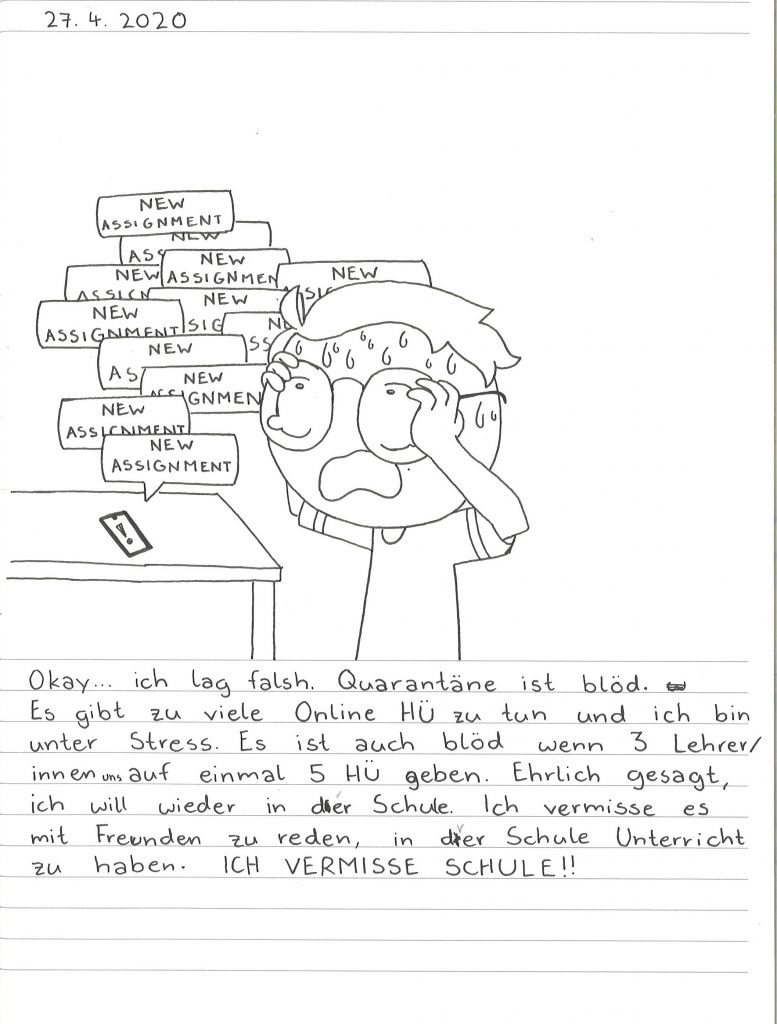 27. 4. 2020
NEW
ASSIGNMENT
NEW
ASS
NEW
ASSIGNMEN
NEW
NEW
NEW
SIG
NEW
ASSIGNMENT
NEW
AS
NEW
SIGNMEN
NEW
ASSIGNMENT
NEW
ASSIGNMENT
!
Okay... ich lag falsh. Quarantäne ist blöd.
Es gibt zu viele Online HÜ zu tun und ich bin
unter Stress. Es ist auch blöd wenn 3 Lehrer/
innen uns auf einmal 5 HÜ geben. Ehrlich gesagt,
ich will wieder in der Schule. Ich vermisse es
mit Freunden zu reden, in der Schule Unterricht
zu haben. ICH VERMISSE SCHULE!!